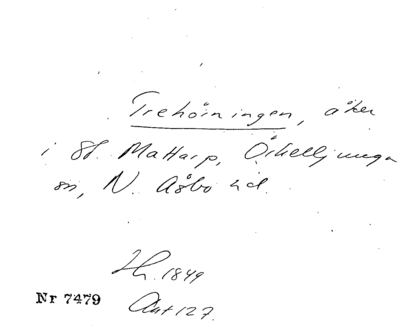 Trehörningen, åker
i St. Mattarp, Örkelljunga
sn, N. Åsbo hd.
Lh. 1849
Nr 7479
Akt 127.